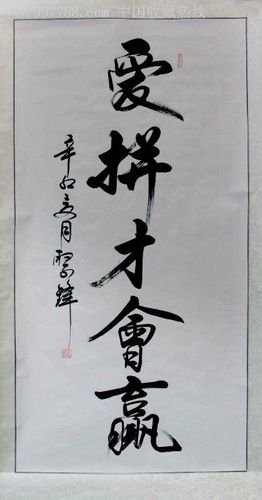 www.997788.com 中国收藏热线
愛拼才會贏
辛卯夏月